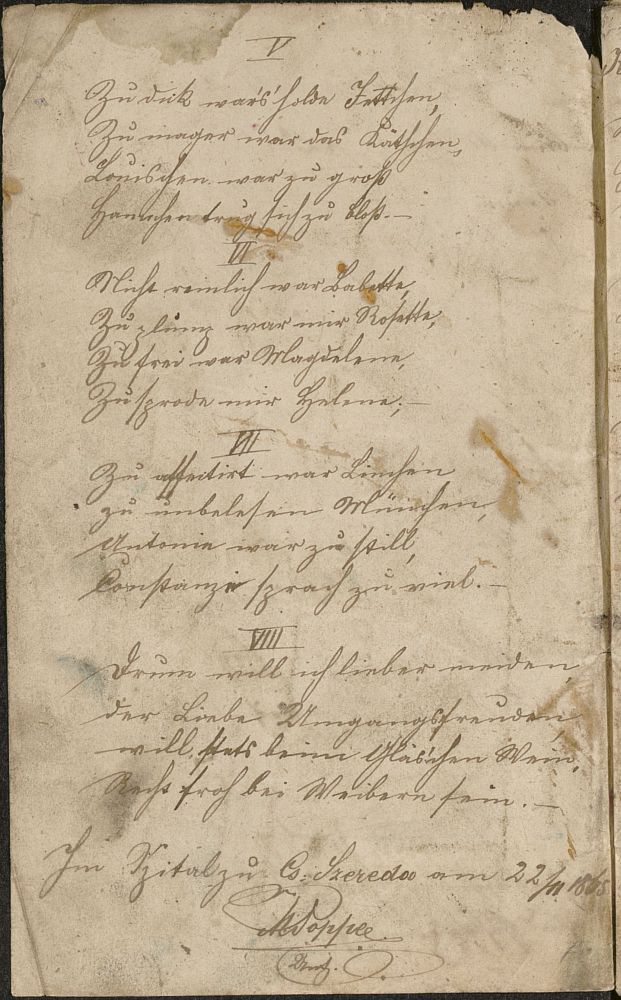 V
Zu dick war's holde Fettchen,
Zu mager war das Käthchen,
Louischen war zu groß
Hannchen trug sich zu bloß. —
VI
Nicht reinlich war Babette,
Zu plump war mir Rosette,
Zu frei war Magdelene,
Zu sprode mir Helene; —
VII
Zu affectirt war Linchen
zu unbelesen Minchen,
Antonie war zu still,
Constanzie sprach zu viel. —
VIII
Drum will ich lieber meiden
der Liebe Umgangsfreuden,
will stets beim Gläschen Wein,
Recht froh bei Weibern sein. —
Im Spital zu Cs: Szereda am 22/11 1865